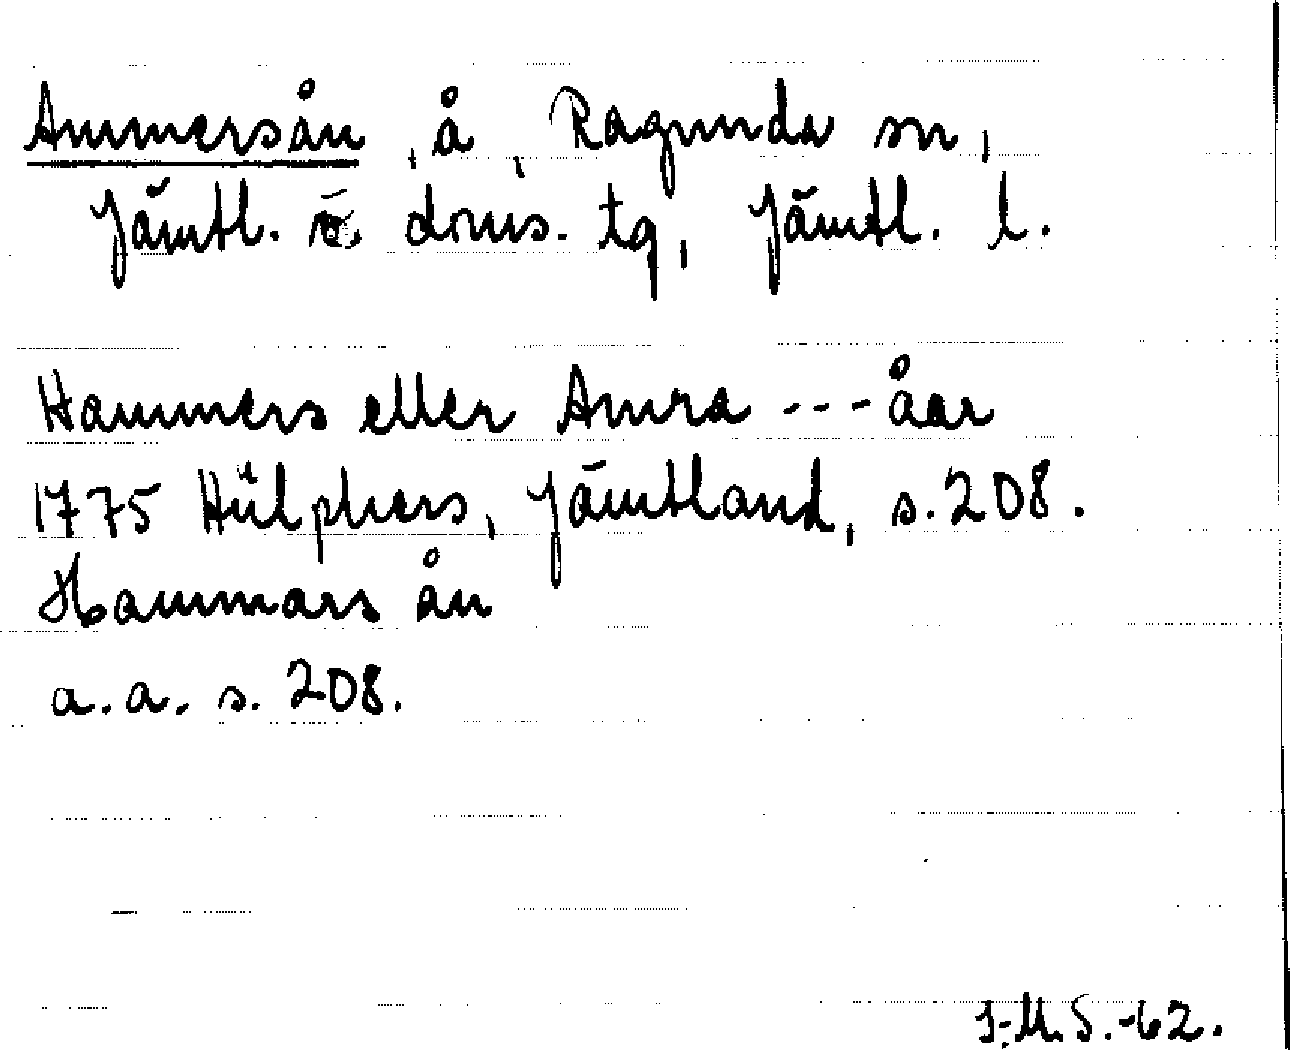 Ammersån, å, Ragunda sn,
Jämtl. ö. doms. tg, Jämtl. l.
Hammers eller Amra --- åar
1775 Hülphers, Jämtland, s. 208.
Hammars ån
a.a. s. 208.
I-M.S.-62.